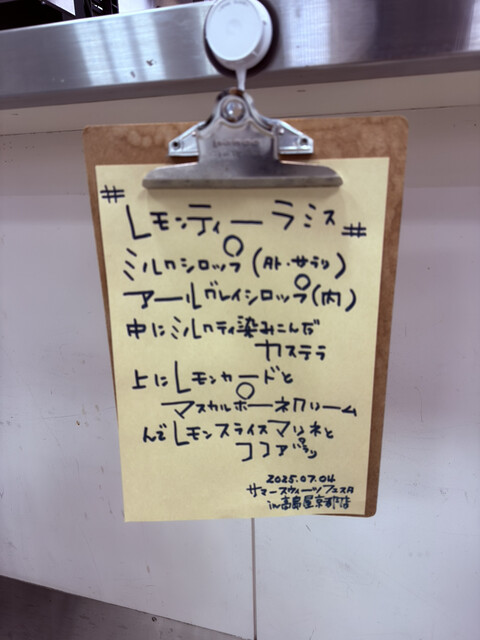 # レモンティーラミス #
ミルクシロップ(外・サラリ)
アールグレイシロップ(内)
中にミルクティ染みこんだ
カステラ
上にレモンカードと
マスカルポーネクリーム
んでレモンスライスマリネと
ココアパラリ
2025.07.04
サマースウィーツフェスタ
in高島屋京都店